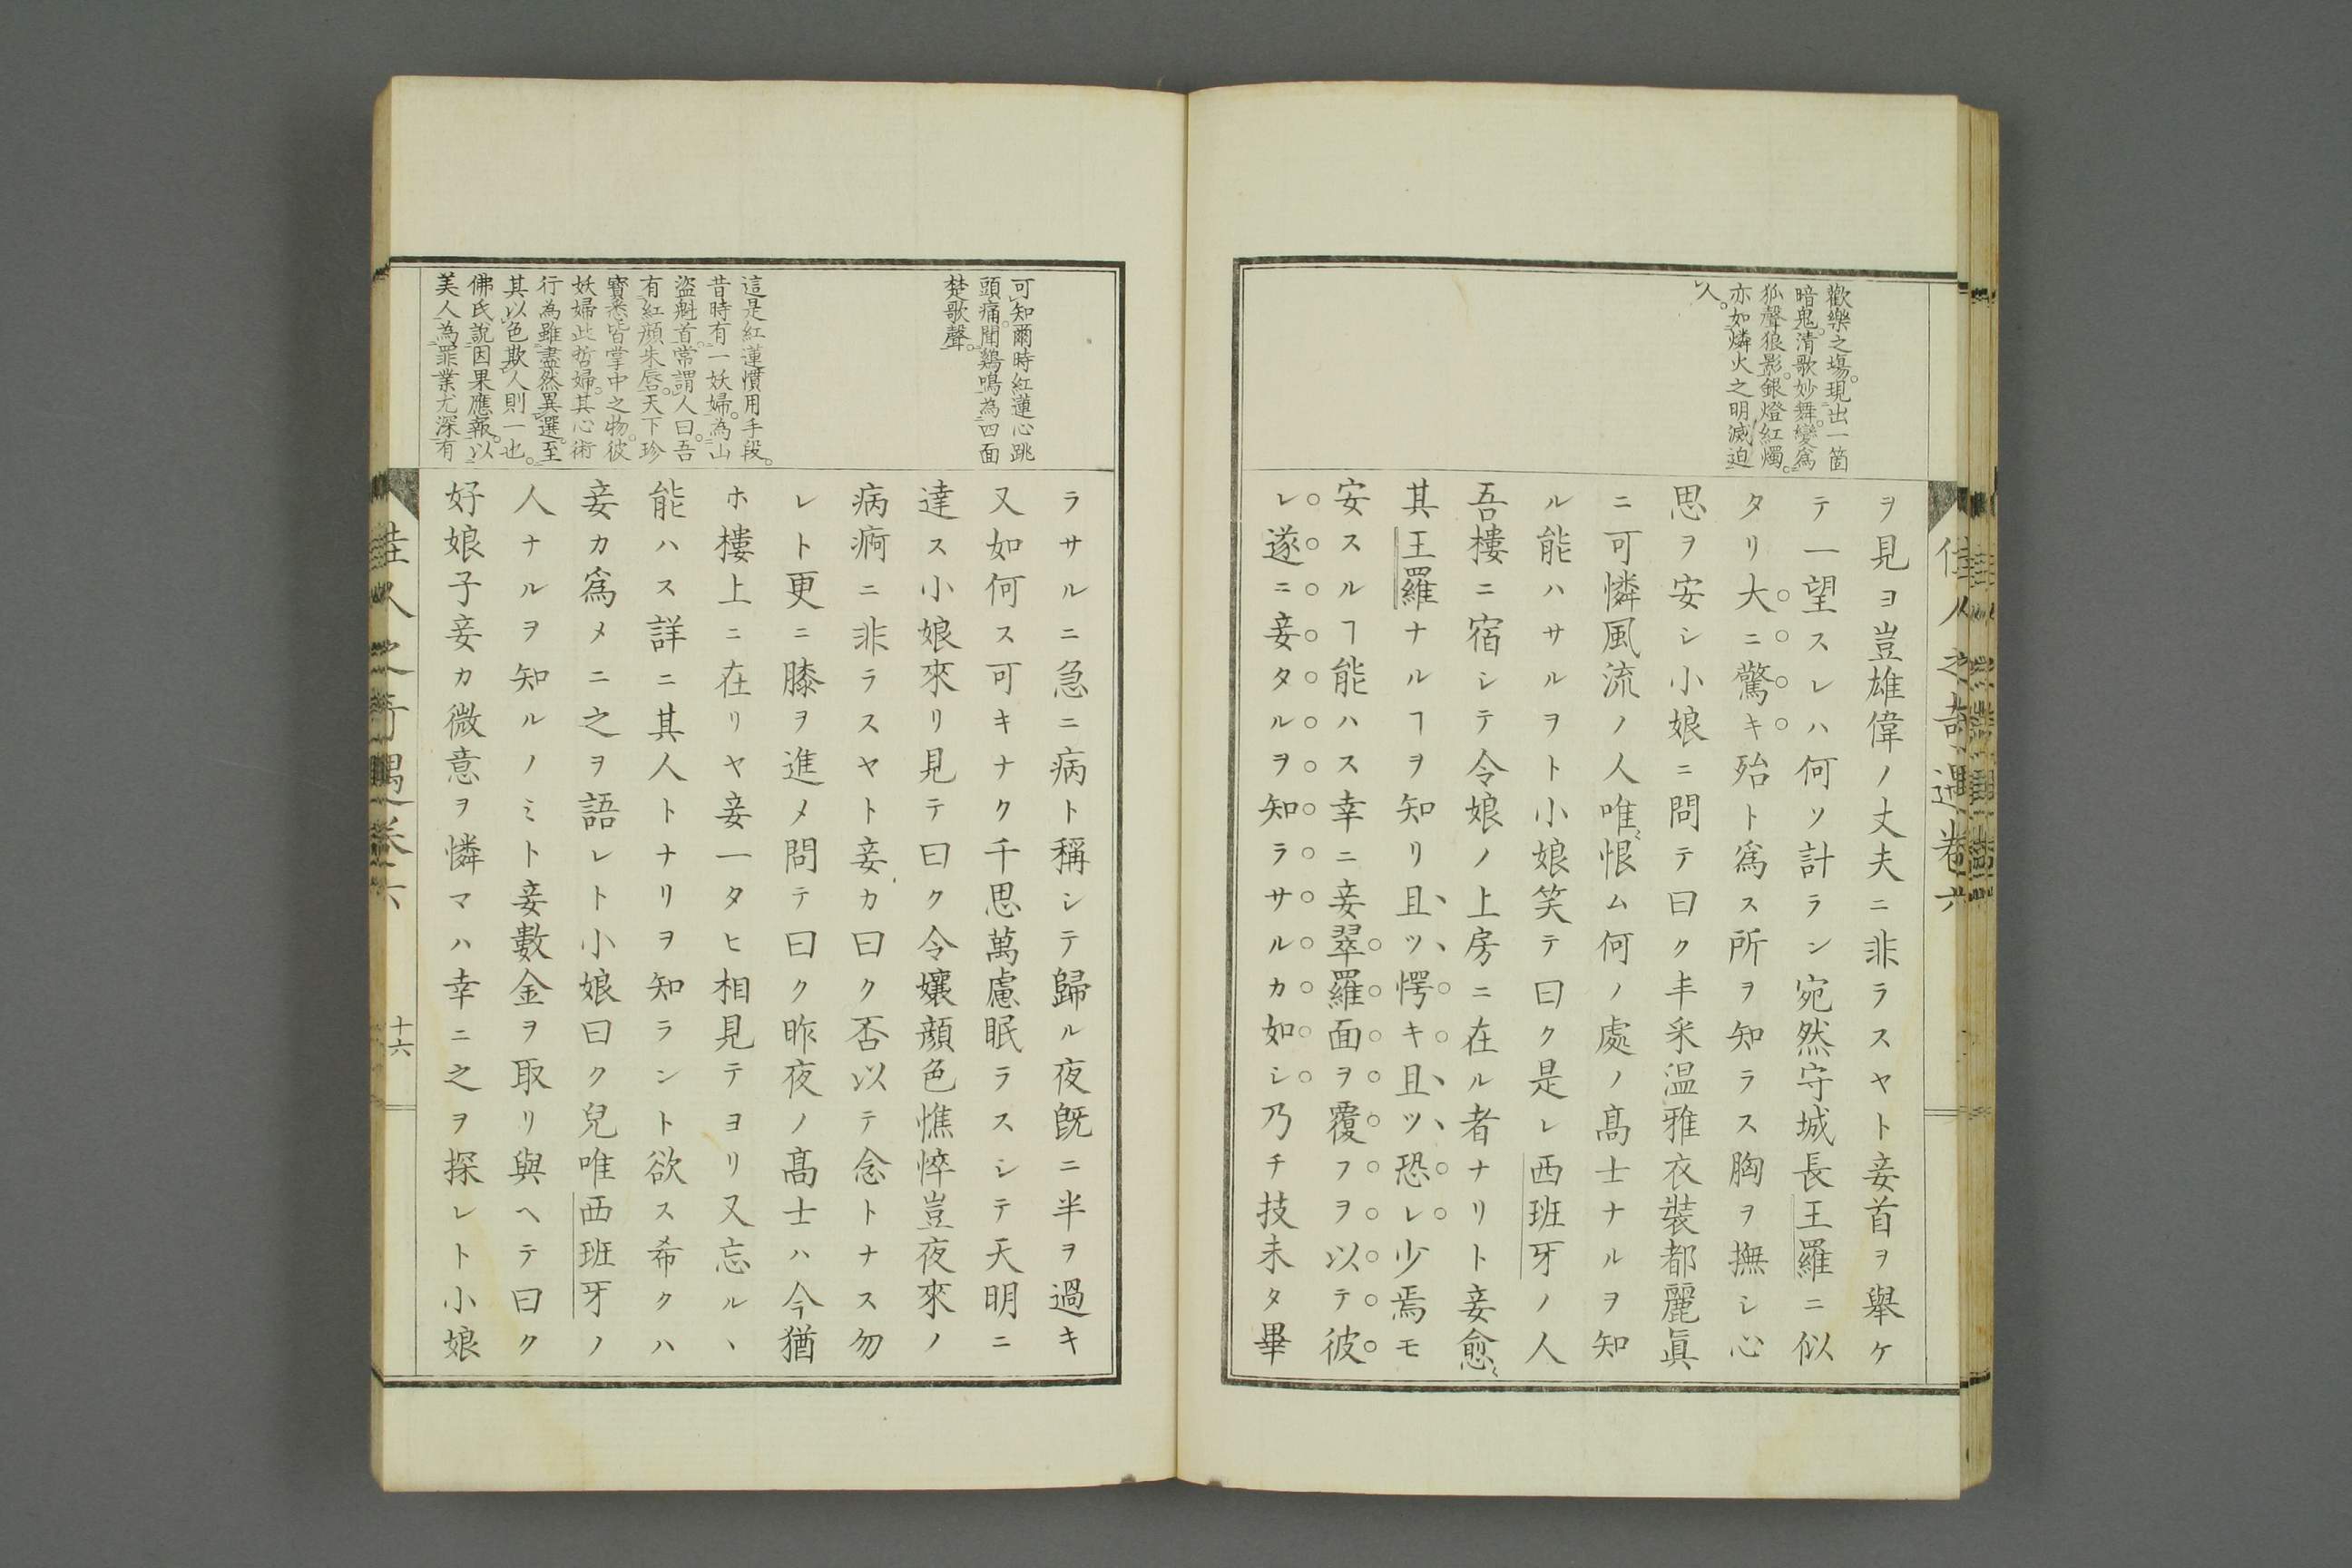 歡樂之塲。現出一箇
暗鬼。清歌妙舞。變爲
狐聲狼影。銀燈紅燭。
亦如燐火之明滅迫
人。
ヲ見ヨ豈雄偉ノ丈夫ニ非ラスヤト妾首ヲ舉ケ
テ一望スレハ何ソ計ラン宛然守城長王羅ニ似
タリ大ニ驚キ殆ト爲ス所ヲ知ラス胸ヲ撫シ心
思ヲ安シ小娘ニ問テ曰ク丰采温雅衣裝都麗眞
ニ可憐風流ノ人唯〻恨ム何ノ處ノ髙士ナルヲ知
ル能ハサルヲト小娘笑テ曰ク是レ西班牙ノ人
吾樓ニ宿シテ令娘ノ上房ニ在ル者ナリト妾愈〻
其王羅ナルヿヲ知リ且ツ愕キ且ツ恐レ少焉モ
安スルヿ能ハス幸ニ妾翠羅面ヲ覆フヲ以テ彼
レ遂ニ妾タルヲ知ラサルカ如シ乃チ技未タ畢
佳人之奇遇卷六
可知爾時紅蓮心跳
頭痛。聞鷄鳴為四面
楚歌聲。
這是紅蓮慣用手段。
昔時有一妖婦。為山
盜魁首。常謂人曰。吾
有紅顏朱唇。天下珍
寶悉皆掌中之物。彼
妖婦此哲婦。其心術
行為雖盡然異選。至
其以色欺人則一也。
佛氏說因果應報。以
美人為罪業尤深有
ラサルニ急ニ病ト稱シテ歸ル夜旣ニ半ヲ過キ
又如何ス可キナク千思萬慮眠ラスシテ天明ニ
達ス小娘來リ見テ曰ク令孃顏色憔悴豈夜來ノ
病痾ニ非ラスヤト妾カ曰ク否以テ念トナス勿
レト更ニ膝ヲ進メ問テ曰ク昨夜ノ髙士ハ今猶
ホ樓上ニ在リヤ妾一タヒ相見テヨリ又忘ルヽ
能ハス詳ニ其人トナリヲ知ラント欲ス希クハ
妾カ爲メニ之ヲ語レト小娘曰ク兒唯西班牙ノ
人ナルヲ知ルノミト妾數金ヲ取リ與ヘテ曰ク
好娘子妾カ微意ヲ憐マハ幸ニ之ヲ探レト小娘
佳人之奇遇卷六
十六